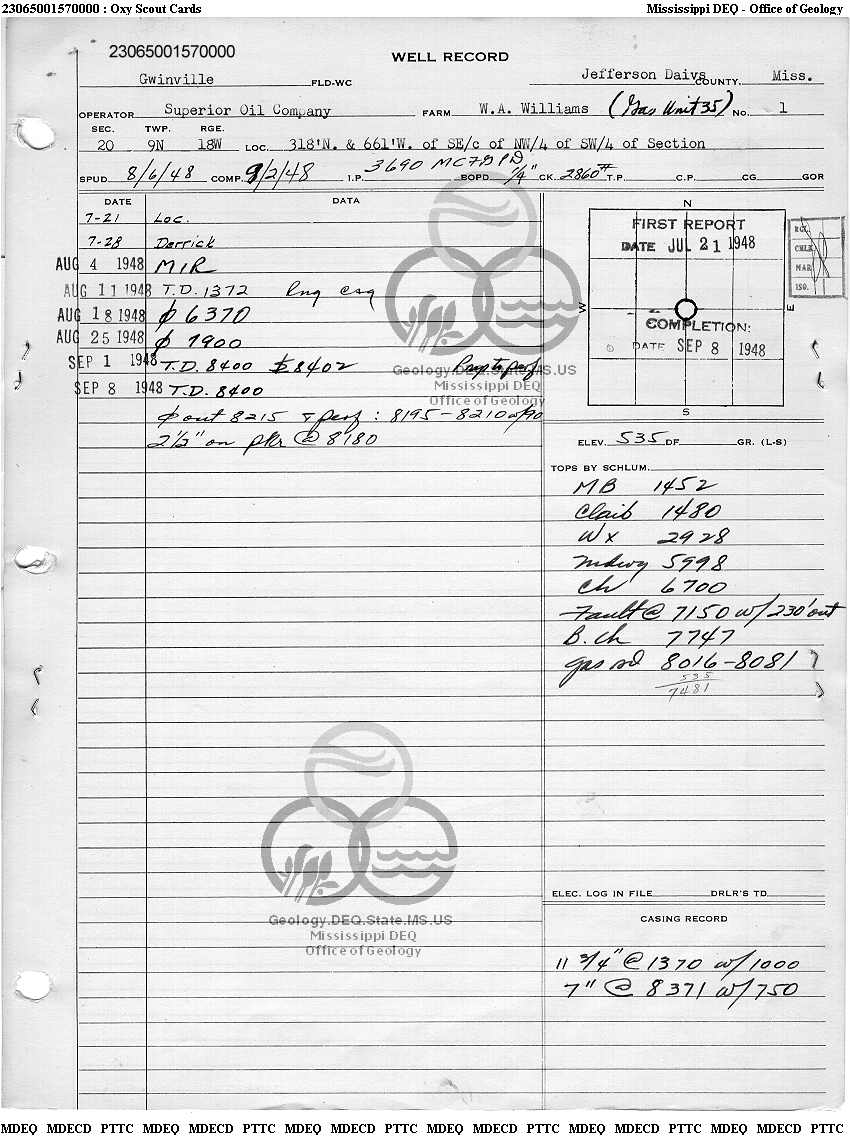 23065001570000 : Oxy Scout Cards Mississippi DEQ - Office of Geology
23065001570000
WELL RECORD
Gwinville FLD-WC Jefferson Daivs COUNTY. Miss.
OPERATOR Superior Oil Company FARM W.A. Williams (Gas Unit 35) No. 1
SEC. TWP. RGE.
20 9N 18W LOC. 318'N. & 661'W. of SE/c of NW/4 of SW/4 of Section
SPUD 8/6/48 COMP. 9/2/48 I.P. 3690 MCFGPD BOPD 1/4" CK. 2860# T.P. C.P. CG GOR
DATE DATA
7-21 Loc.
7-28 Derrick
AUG 4 1948 MIR
AUG 11 1948 T.D. 1372 Rng csg
AUG 18 1948 ϕ 6370
AUG 25 1948 ϕ 7900
SEP 1 1948 T.D. 8400 8402 Prep to perf
SEP 8 1948 T.D. 8400
ϕ out 8215 & perf: 8195-8210 w/90
2 1/2" on pkr @ 8180
N
FIRST REPORT
DATE JUL 21 1948
W E
COMPLETION:
DATE SEP 8 1948
S
REC.
CHLK
MAR
ISO.
ELEV. 535 DF GR. (L-S)
TOPS BY SCHLUM.
MB 1452
Claib 1480
Wx 2928
Mdwy 5998
Ch 6700
Fault @ 7150 w/230' out
B. Ch 7747
gas sd 8016-8081
535
7481
ELEC. LOG IN FILE DRLR'S TD
CASING RECORD
11 3/4" @ 1370 w/1000
7" @ 8371 w/750
Geology.DEQ.State.MS.US
Mississippi DEQ
Office of Geology
Geology.DEQ.State.MS.US
Mississippi DEQ
Office of Geology
MDEQ MDECD PTTC MDEQ MDECD PTTC MDEQ MDECD PTTC MDEQ MDECD PTTC MDEQ MDECD PTTC MDEQ MDECD PTTC